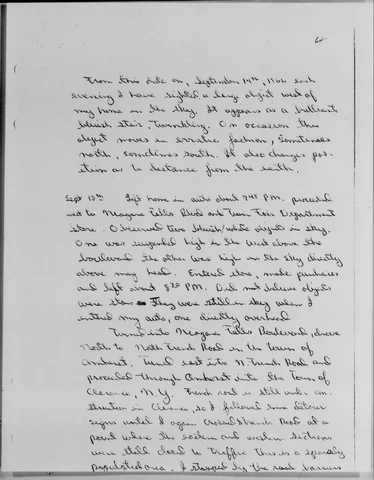 4
From this date on, September 14th, 1966 each
evening I have sighted a large object west of
my home in the sky. It appears as a brilliant
bluish star, twinkling. On occasion this
object moves in erratic fashion, sometimes
north, sometimes south. It also changes pos-
ition as to distance from the earth.
Sept 15th Left home in auto about P.M. proceeded
west to Niagara Falls Blvd and Twin Fair Department
store. Observed two bluish/white objects in sky.
One was suspended high in the west above the
boulevard the other was high in the sky directly
above my head. Entered store, made purchases
and left about 8 P.M. Did not believe objects
were stars They were still in sky when I
entered my auto, one directly overhead
Turned into Niagara Falls Boulevard, drove
North to North French Road in the town of
Amherst. Turned east into N. French Road and
proceeded through Amherst into the Town of
Clarence, N.Y. French road is still under con-
struction in Clarence, so I followed some detour
signs until I again crossed French Road at a
point where the eastern and western sections
were still closed to traffic this is a sparsely
populated area. I stopped by the road barriers